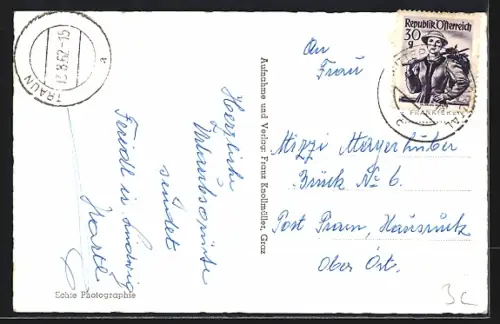 TRAUN
12.8.52-15
a
Republik Österreich
30
g
An
Frau
Mizzi Mayerhuber
Brück No 6.
Post Pram, Hausruck
Ober Öst.
Herzliche
Urlaubsgrüße
sendet
Friedl u. Ludwig
Hartl
Aufnahme und Verlag: Franz Knollmüller, Graz
Echte Photographie